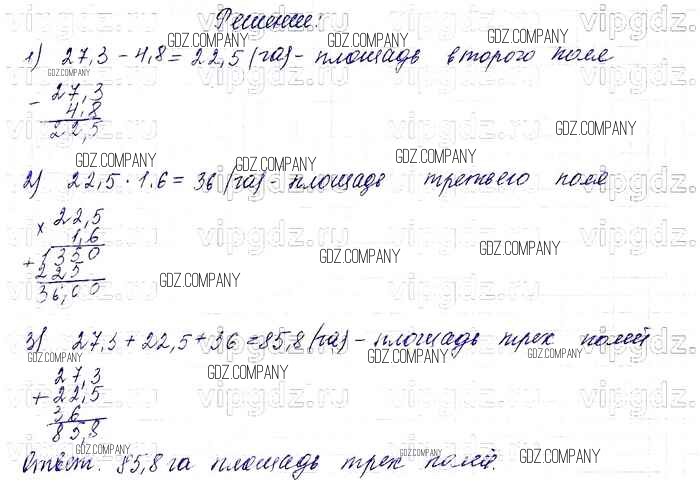 Решение:
1) 27,3 - 4,8 = 22,5 (га) - площадь второго поля
- 27,3
4,8
22,5
2) 22,5 · 1.6 = 36 (га) - площадь третьего поля
× 22,5
1,6
+ 1350
225
36,00
3) 27,3 + 22,5 + 36 = 85,8 (га) - площадь трех полей
27,3
+ 22,5
36
85,8
Ответ: 85,8 га площадь трех полей.
GDZ.COMPANY
vipgdz.ru